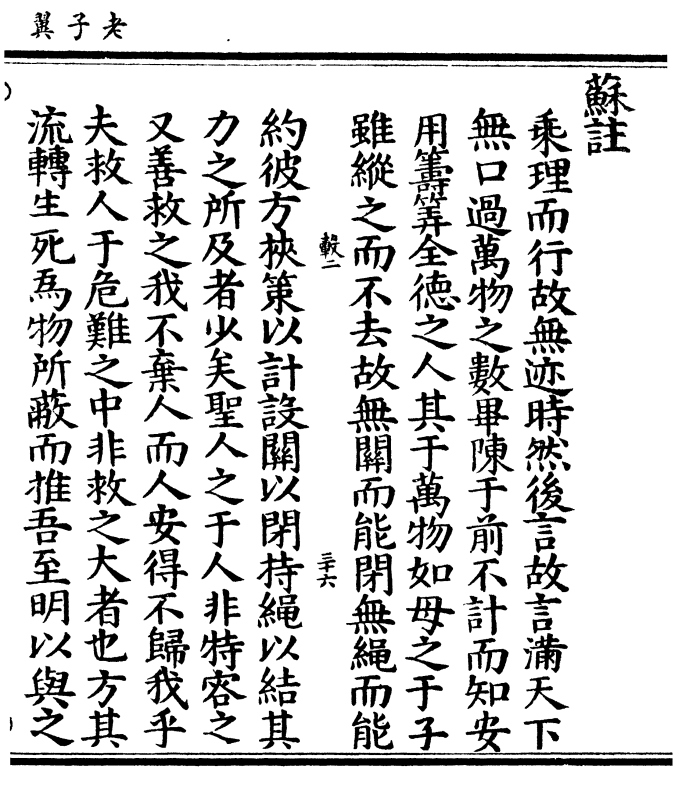 老子翼
蘇註
乘理而行故無迹時然後言故言滿天下
無口過萬物之數畢陳于前不計而知安
用籌筭全德之人其于萬物如母之于子
雖縱之而不去故無關而能閉無繩而能
毂二
三十六
約彼方挾策以計設關以閉持繩以結其
力之所及者少矣聖人之于人非特容之
又善救之我不棄人而人安得不歸我乎
夫救人于危難之中非救之大者也方其
流轉生死爲物所蔽而推吾至明以與之